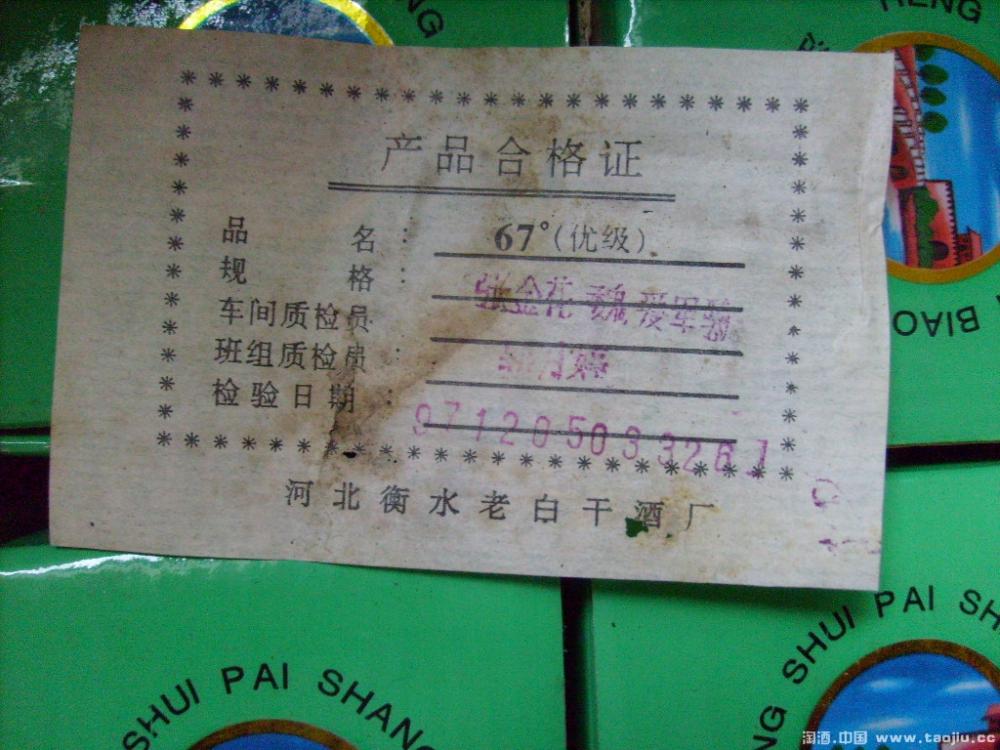 HENG
产品合格证
品名：67°(优级)
规格：
车间质检员：张金花 魏爱军
班组质检员：
检验日期：97120503326
河北衡水老白干酒厂
BIAO
SHUI PAI SHANG
NG SHUI PAI SH
淘酒.中国 www.taojiu.cc